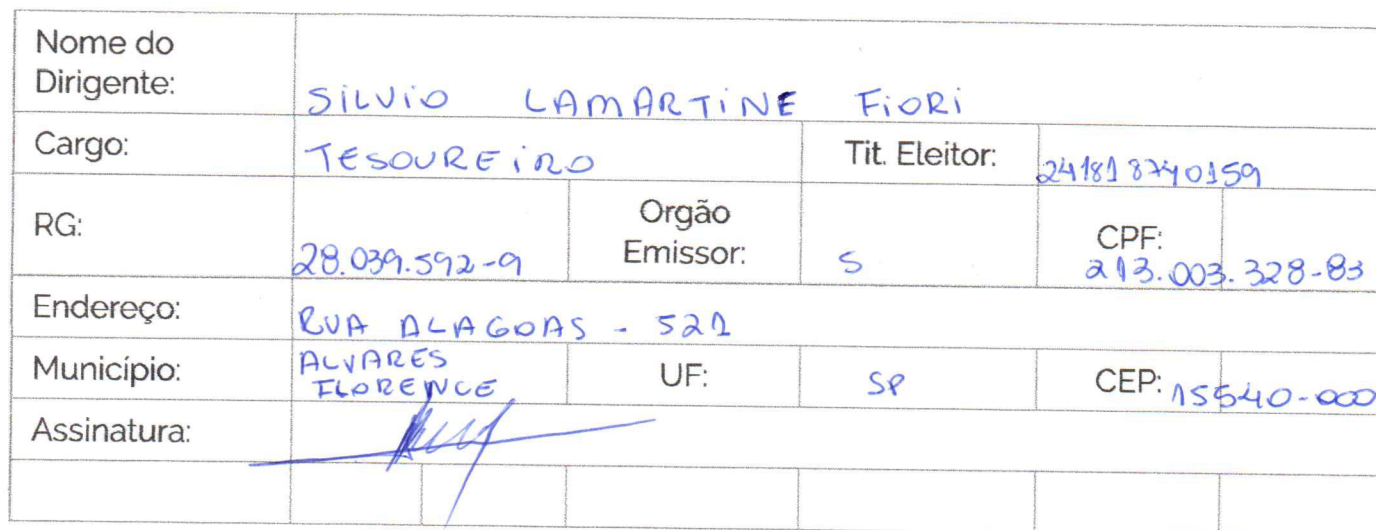 Nome do
Dirigente: SILVIO LAMARTINE FIORI
Cargo: TESOUREIRO Tit. Eleitor: 241818740159
RG: 28.039.592-9 Orgão Emissor: S CPF: 213.003.328-83
Endereço: RUA ALAGOAS - 521
Município: ALVARES FLORENCE UF: SP CEP: 15540-000
Assinatura: